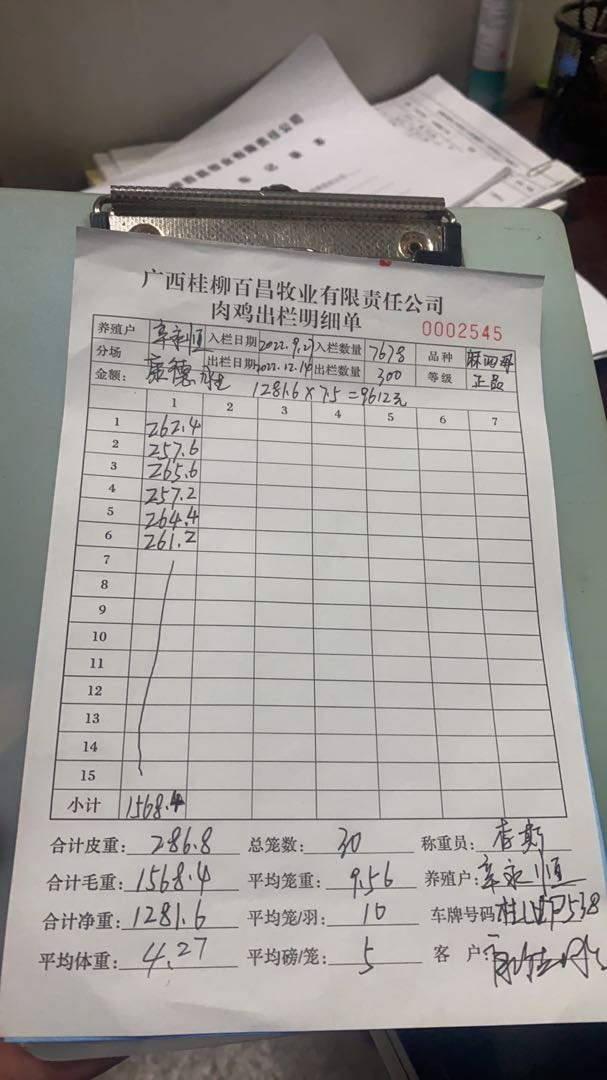 广西桂柳百昌牧业有限责任公司
肉鸡出栏明细单
0002545
养殖户 辛永恒 入栏日期 2022.9.27 入栏数量 7678 品种
分场 康德 出栏日期 2022.12.14 出栏数量 300 等级 正品
金额: 1281.6×7.5=9612元
1 2 3 4 5 6 7
1 262.4
2 257.6
3 265.6
4 257.2
5 264.4
6 261.2
7
8
9
10
11
12
13
14
15
小计 1568.4
合计皮重: 286.8 总笼数: 30 称重员: 李斯
合计毛重: 1568.4 平均笼重: 9.56 养殖户: 辛永恒
合计净重: 1281.6 平均笼/羽: 10 车牌号码
平均体重: 4.27 平均磅/笼: 5 客 户: